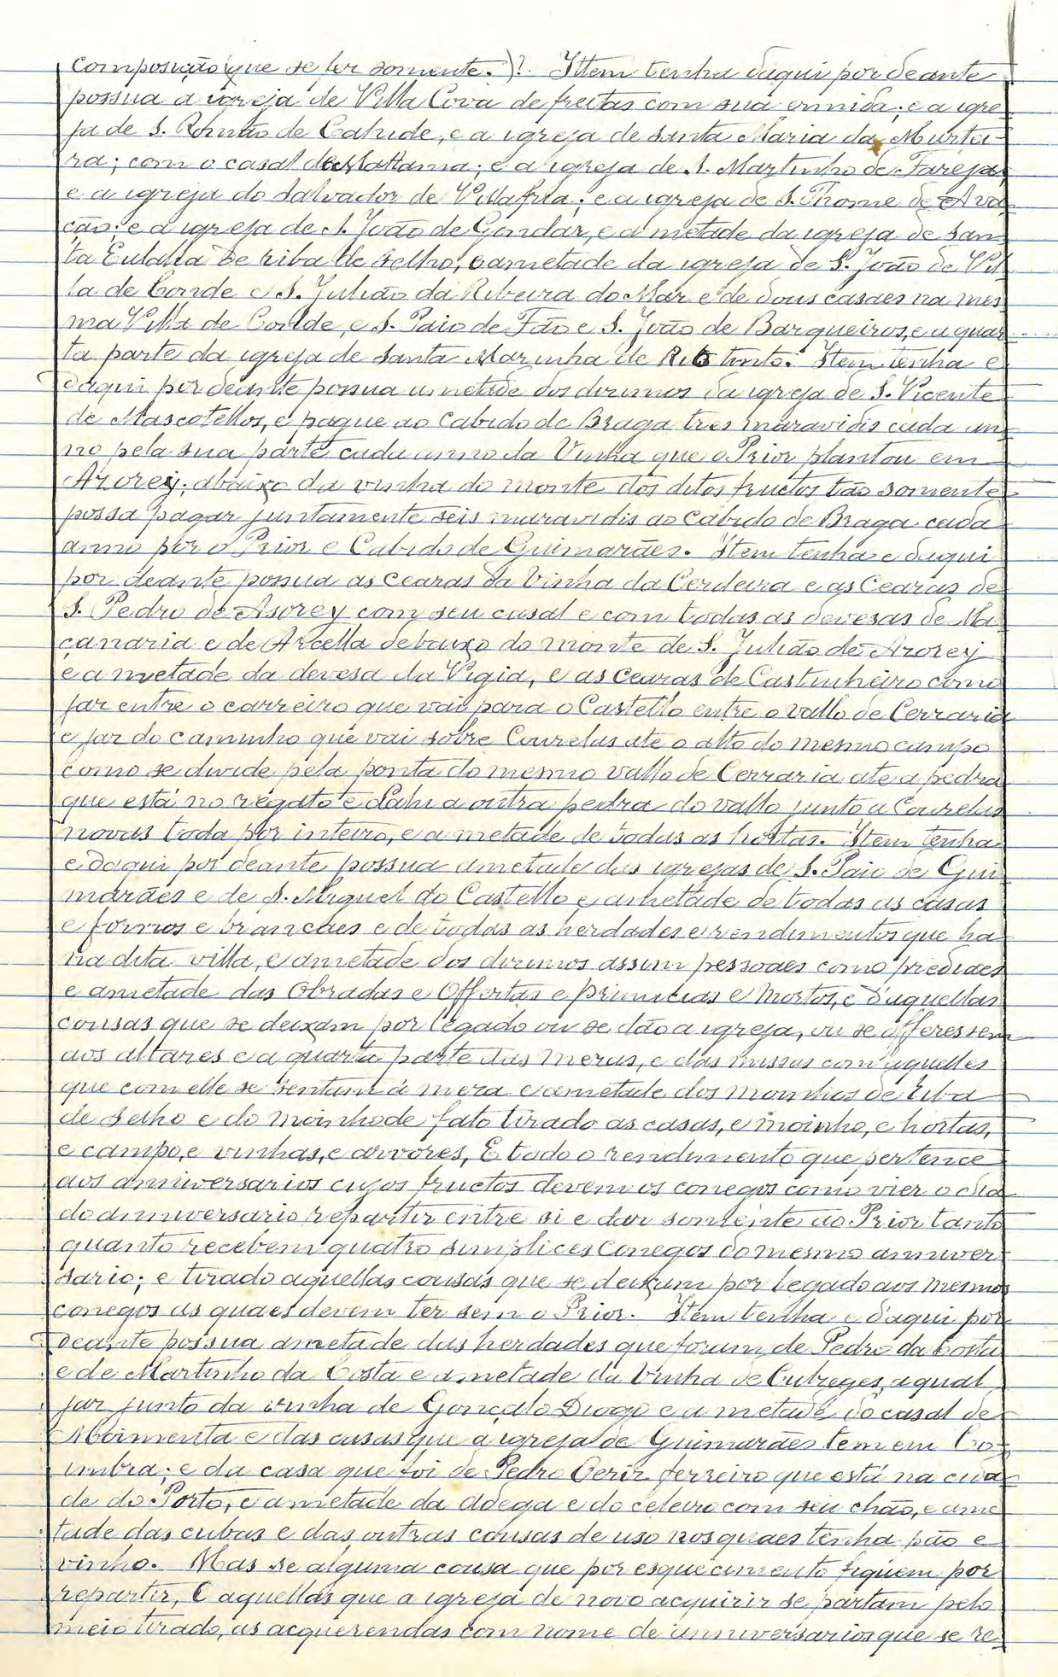 composição que se ler somente.)? Ittem tenha daqui por deante
possua a igreja de Villa Cova de freitas com sua ermida; e a igre
ja de S. Romão de Cahide, e a igreja de santa Maria da Murtei-
ra; com o casal de ; e a igreja de S. Martinho de Fareja,
e a igreja do Salvador de Villafria; e a igreja de S. Thome de Ava
cão; e a igreja de S. João de Gondar, e a metade da igreja de San
ta Eulalia de riba de selho, e ametade da igreja de S. João de Vil
la de Conde e S. Julião da Ribeira do Mar e de dous casaes na mes
ma Villa de Conde, e S. Paio de Fão e S. João de Barqueiros, e a quar
ta parte da igreja de Santa Marinha de Rio tinto. Item tenha e
daqui por deante possua ametade dos dizimos da igreja de S. Vicente
de Mascotellos, e pague ao Cabido de Braga tres maravidis cada an
no pela sua parte cada anno da Vinha que o Prior plantou em
Azorey; abaixo da vinha do monte dos ditos fructos tão somente
possa pagar juntamente seis maravidis ao Cabido de Braga cada
anno por o Prior e Cabido de Guimarães. Item tenha e daqui
por deante possua as cearas da Vinha da Cerdeira e as Cearas de
S. Pedro de Asorey com seu casal e com todas as devesas de Ma
çanaria e de Arcella debaixo do monte de S. Julião de Azorey
e a metade da devesa da Vigia, e as cearas de Castinheiro como
jaz entre o carreiro que vai para o Castello entre o vallo de Cerraria
e jaz do caminho que vai sobre Courelas ate o alto do mesmo campo
como se divide pela ponta do mesmo vallo de Cerraria ate a pedra
que está no regato e dahi a outra pedra do vallo junto a Courelas
novas toda por inteiro, e a metade de todas as hortas. Item tenha
e daqui por deante possua ametade das igrejas de S. Paio de Gui
marães e de S. Miguel do Castello e ametade de todas as casas
e fornos e e de todas as herdades e rendimentos que ha
na dita villa, e ametade dos dizimos assim pessoaes como prediaes
e ametade das Obradas e Offertas e primicias e Mortos, e d'aquellas
cousas que se deixam por legado ou se dão a igreja, ou se offeressem
aos altares e a quarta parte das mezas, e das missas com aquelles
que com elle se sentam á meza e ametade dos moinhos de riba
de selho e do moinho de fato tirado as casas, e moinho, e hortas,
e campo, e vinhas, e arvores, E todo o rendimento que pertence
aos anniversarios cujos fructos devem os conegos como vier o dia
do anniversario repartir entre si e dar somente ao Prior tanto
quanto recebem quatro simplices Conegos do mesmo anniver
sario; e tirado aquellas cousas que se deixam por legado aos mesmos
conegos as quaes devem ter sem o Prior. Item tenha e d'aqui por
deante possua ametade das herdades que foram de Pedro da Costa
e de Martinho da Costa e ametade da Vinha de Cutreges, a qual
jaz junto da vinha de Gonçalo Diogo e a metade do casal de
Moimenta e das casas que a igreja de Guimarães tem em Co-
imbra; e da casa que foi de Pedro Ceriz ferreiro que está na cida
de do Porto, e ametade da adega e do celeiro com seu chão, e ame
tade das cubas e das outras cousas de uso nos quaes tenha pão e
vinho. Mas se alguma cousa que por esquecimento fiquem por
repartir, E aquellas que a igreja de novo acquirir se partam pelo
meio tirado, as acquerendas com nome de anniversarios que se re-